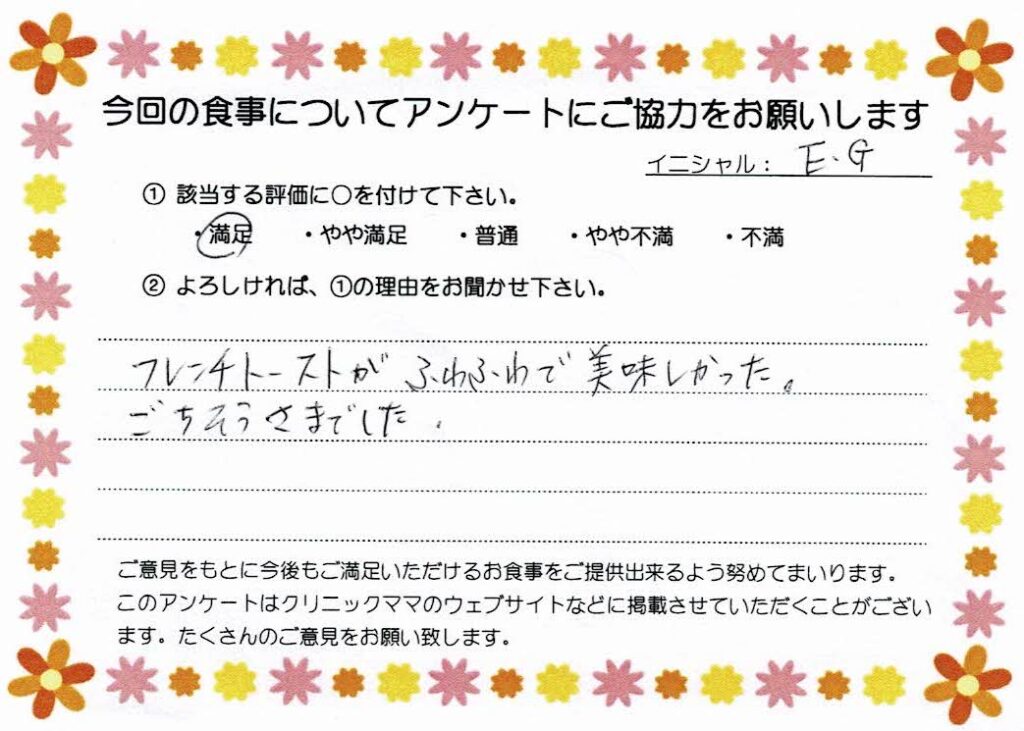 今回の食事についてアンケートにご協力をお願いします
イニシャル： E.G
① 該当する評価に〇を付けて下さい。
・満足 ・やや満足 ・普通 ・やや不満 ・不満
② よろしければ、①の理由をお聞かせ下さい。
フレンチトーストがふわふわで美味しかった。
ごちそうさまでした.
ご意見をもとに今後もご満足いただけるお食事をご提供出来るよう努めてまいります。
このアンケートはクリニックママのウェブサイトなどに掲載させていただくことがござい
ます。たくさんのご意見をお願い致します。